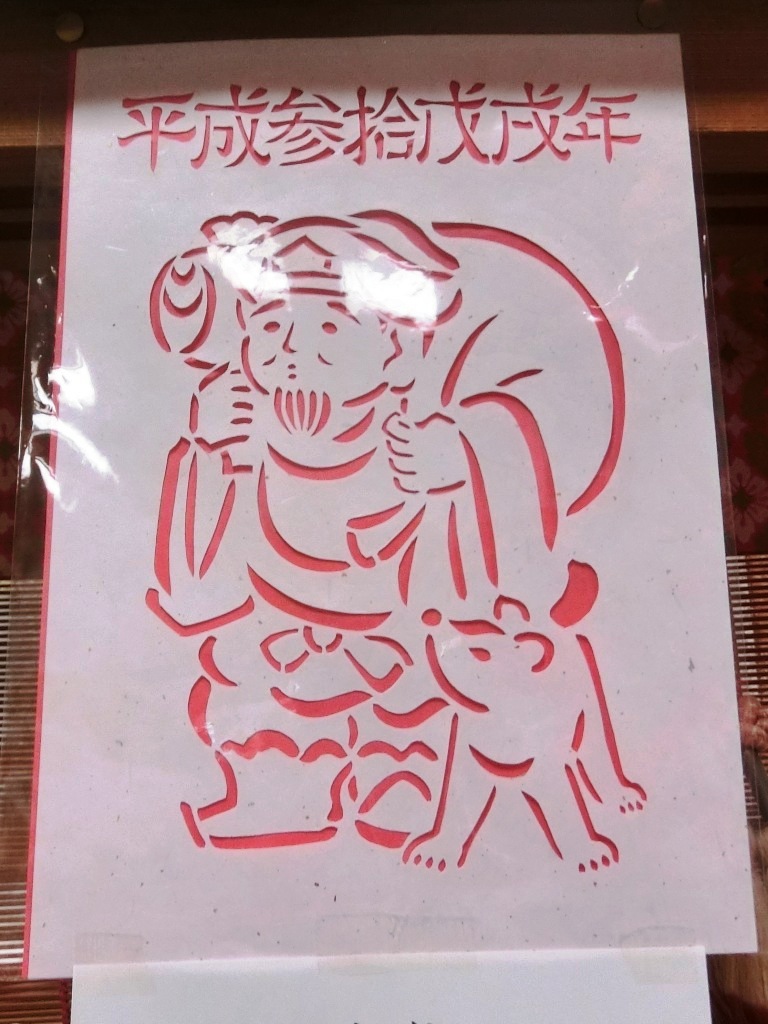 平成参拾戊戌年